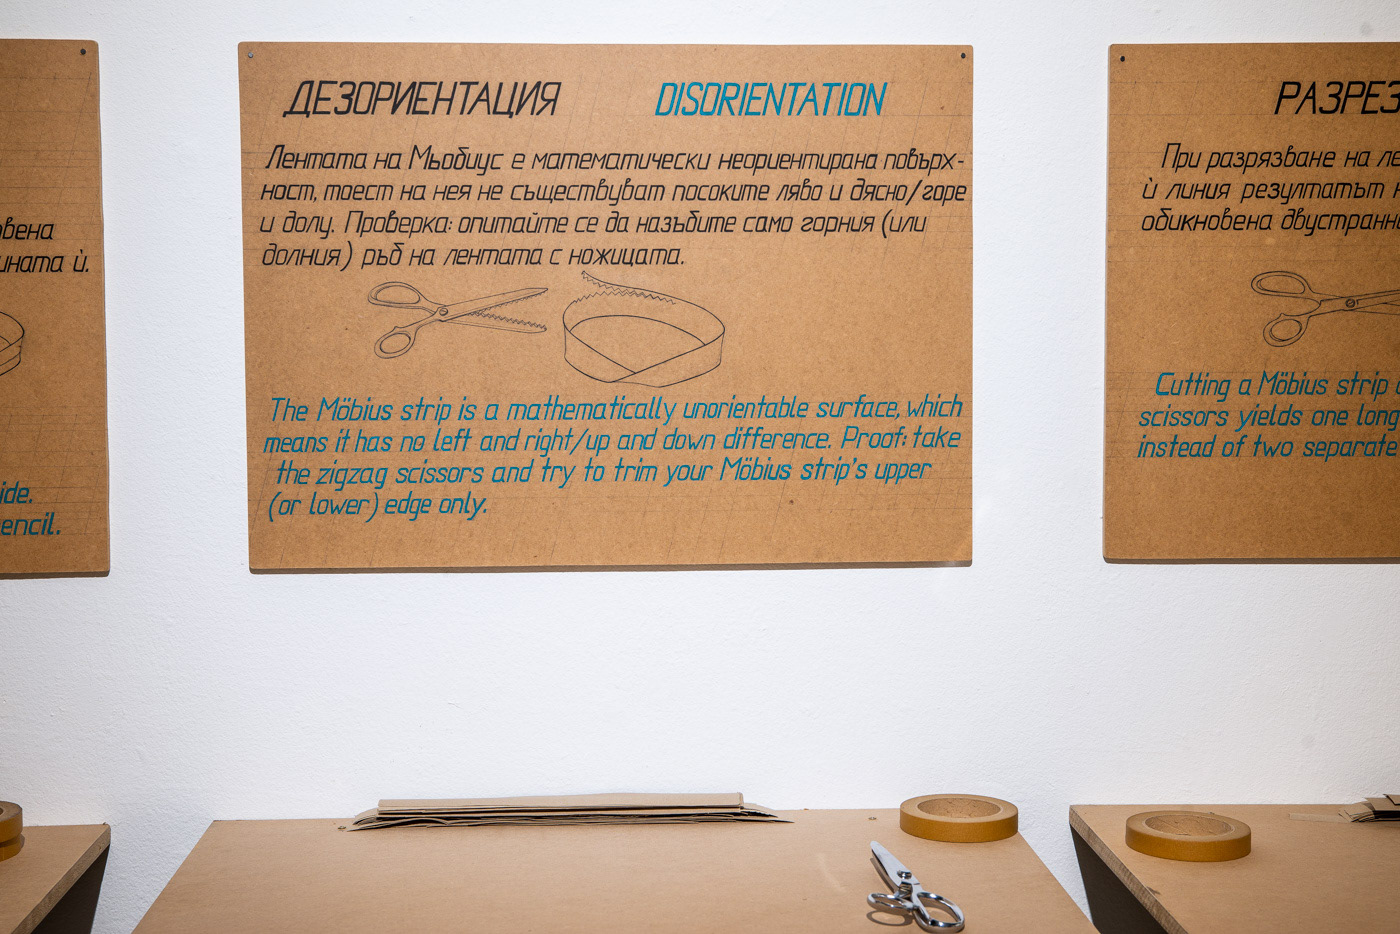 вена
ината ѝ.
ide.
encil.
ДЕЗОРИЕНТАЦИЯ DISORIENTATION
Лентата на Мьобиус е математически неориентирана повърх-
ност, тоест на нея не съществуват посоките ляво и дясно/горе
и долу. Проверка: опитайте се да назъбите само горния (или
долния) ръб на лентата с ножицата.
The Möbius strip is a mathematically unorientable surface, which
means it has no left and right/up and down difference. Proof: take
the zigzag scissors and try to trim your Möbius strip's upper
(or lower) edge only.
РАЗРЕЗ
При разрязване на ле
ѝ линия резултатът
обикновена двустранн
Cutting a Möbius strip
scissors yields one long
instead of two separate